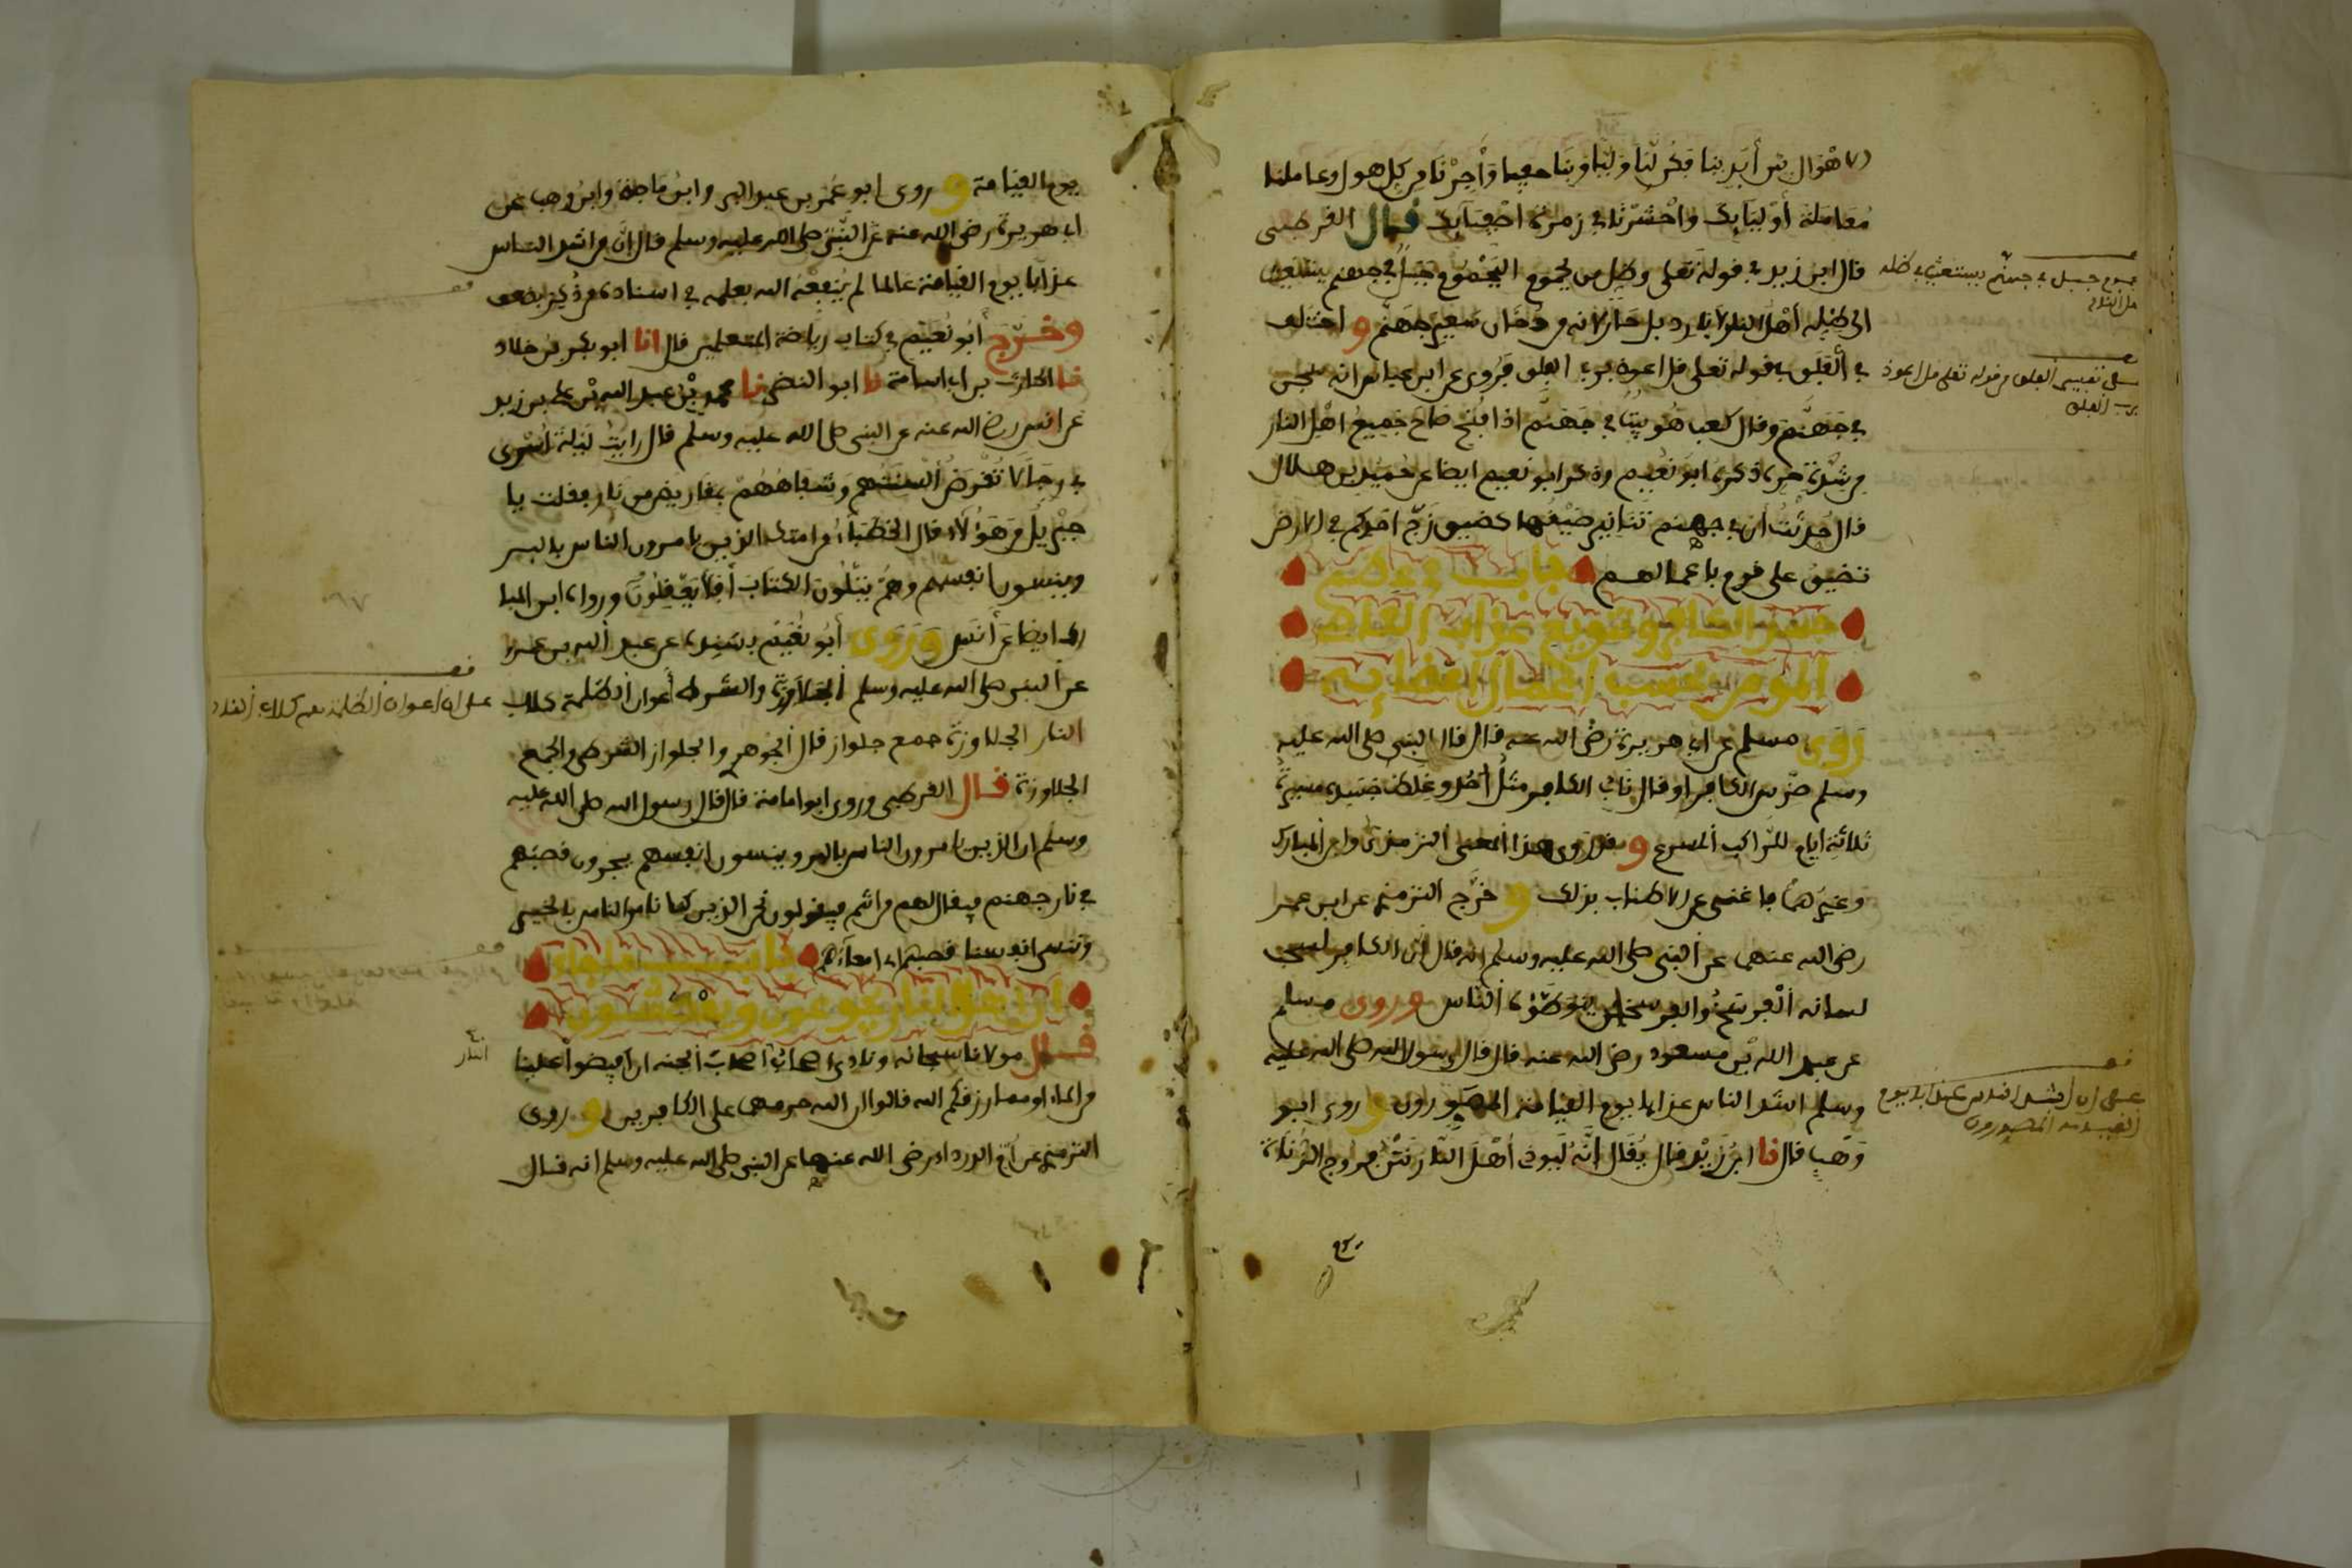 الاهوال بين أيدينا فكن لنا وليا وبنا حفيا وأجرنا من كل هول وعاملنا
معاملة أوليايك واحشرنا في زمرة اصفيآيك قال القرطبى
قال ابن زيد في قوله تعلى وظل من يحموم اليحموم جبل في جهنم يستغيث
الى ظله أهل النار لا بارد بل حار لانه من دخان سعير جهنم و اختلف
في ألفلق في قوله تعلى قل اعوذ برب الفلق فروى عن ابن عباس انه سجن
في جهنم وقال كعب هو بيت في جهنم اذا فتح صاح جميع اهل النار
من شدة حره ذكره ابو نعيم وذكر ابو نعيم ايضا عن حميد بن هلال
قال حدثت ان في جهنم تنانير ضيقها كضيق زج احدكم في الارض
تضيق على قوم باعمالهم باب في عظم
جسم الكافر وتنويع عذاب العاصى
المومن بحسب اعمال اعضايه
روى مسلم عن ابي هريرة رضى الله عنه قال قال النبي صلى الله عليه
وسلم ضرس الكافر او قال ناب الكافر مثل أحد وغلظ جسده مسيرة
ثلاثة أيام للراكب المسرع و قد روى هذا المعنى الترمذي وابن المبارك
وغيرهما ما غنى عن الاطناب بذلك و خرج الترمذي عن ابن عمر
رضى الله عنهما عن النبي صلى الله عليه وسلم انه قال ان الكافر ليسحب
لسانه الفرسخ والفرسخين يتوطؤه الناس وروى مسلم
عن عبد الله بن مسعود رضى الله عنه قال قال رسول الله صلى الله عليه
وسلم اشد الناس عذابا يوم القيامة المصورون و روى ابو
وهب قال نا ابن زيد قال يقال انه ليوذى أهل النار نتن فروج الزناة
جبل في جهنم يستغيث الى ظله
اهل النار
تفسير الفلق من قوله تعلى قل اعوذ
برب الفلق
على ان اشد الناس عذابا يوم
القيامة المصورون
يوم القيامة و روى ابو عمر بن عبد البر وابن ماجة وابن وهب عن
ابي هريرة رضى الله عنه عن النبي صلى الله عليه وسلم قال ان من اشد الناس
عذابا يوم القيامة عالما لم ينفعه الله بعلمه في اسناده
وخرج أبو نعيم في كتاب رياضة المتعلمين قال انا ابو بكر بن خلاد
نا الحارث بن ابي اسامة نا ابو النضر نا محمد بن عبد الله بن علي بن زيد
عن انس رضى الله عنه عن النبي صلى الله عليه وسلم قال رايت ليلة اسرى
بي رجالا تقرض ألسنتهم وشفاههم بمقاريض من نار فقلت يا
جبريل من هؤلاء قال الخطباء من امتك الذين يامرون الناس بالبر
وينسون انفسهم وهم يتلون الكتاب أفلا يعقلون ورواه ابن المبا
رك ايضا عن أنس وروى أبو نعيم بسنده عن عبد الله بن عمر
عن النبي صلى الله عليه وسلم الجلاوزة والشرط أعوان الظلمة كلاب
النار الجلاوزة جمع جلواز قال الجوهري والجلواز الشرطى والجمع
الجلاوزة قال القرطبى وروى ابو امامة قال قال رسول الله صلى الله عليه
وسلم ان الذين يامرون الناس بالبر وينسون انفسهم يجرون قصبهم
في نار جهنم فيقال لهم من انتم فيقولون نحن الذين كنا نامر الناس بالخير
وننسى انفسنا قصبهم امعآءهم باب ما جاء
ان اهل النار يجوعون ويعطشون
قال مولانا سبحانه ونادى اصحاب أصحاب الجنه ان افيضوا علينا
من الماء او مما رزقكم الله قالوا ان الله حرمهما على الكافرين و روى
الترمذي عن أم الدرداء رضى الله عنها عن النبي صلى الله عليه وسلم انه قال
على ان اعوان الظلمة هم كلاب النار
النار